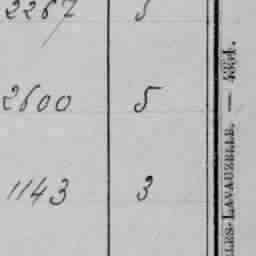 2267 5
2600 5
1143 3
LES-LAVAUZELLE. — 4354.